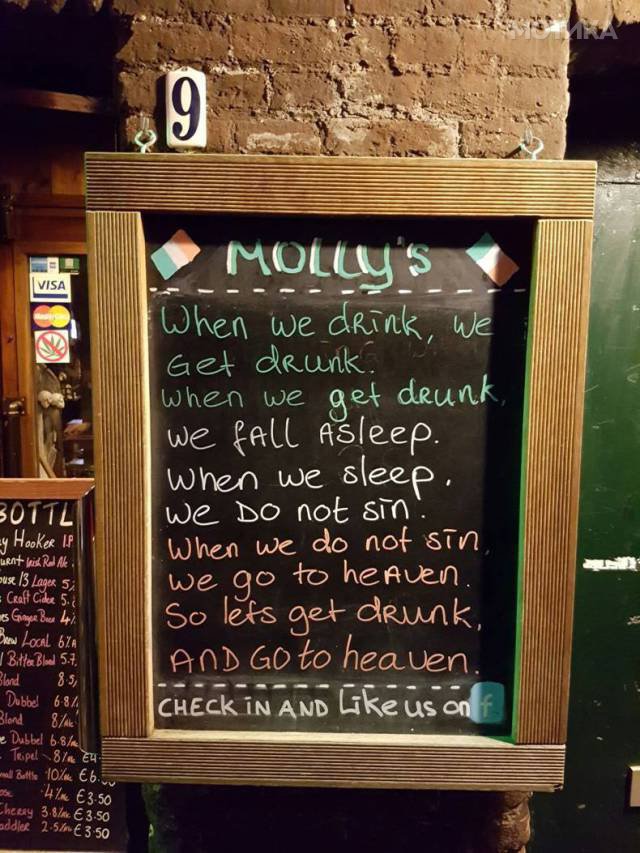 МОТИКА
9
MOLLY'S
When we drink, we
Get drunk.
when we get drunk,
we fall Asleep.
When we sleep,
we Do not sin.
When we do not sin,
we go to heaven.
So lets get drunk,
AND GO to heaven.
CHECK in AND Like us on f
VISA
MasterCard
BOTTL
y Hooker
Irish Red Ale
13 Lager 5.
Craft Cider 5.
Ginger Beer 4%
Brew Local 6%
Bitter Blond 5.7
Blond 8.5
Dubbel 6.8%
Blond 8%
Dubbel 6.8%
Tripel 8% €4
Small Bottle 10% €6.
4% €3.50
Cherry 3.8% €3.50
addler 2.5% €3.50